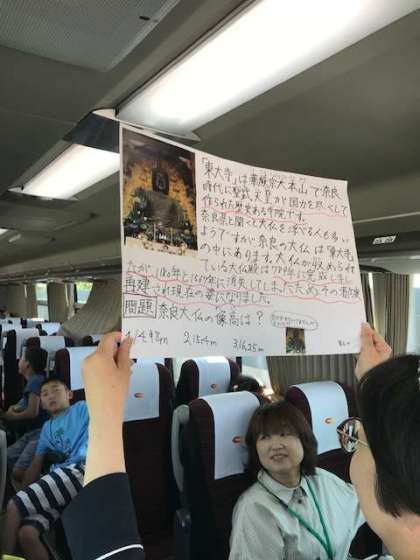 「東大寺」は華厳宗大本山で奈良
時代に聖武天皇が国力を尽くして
作られた歴史ある寺院です。
奈良県と聞くと大仏を浮べる人も多い
ようですが、奈良の大仏は「東大寺」
の中にあります。大仏が収められ
ている大仏殿は758年に完成しまし
たが1180年と1567年に消失してしまったため、その都度
再建され現在の姿になりました。
問題 奈良大仏の像高は？
1.14.98m 2.15.4m 3.16.25m